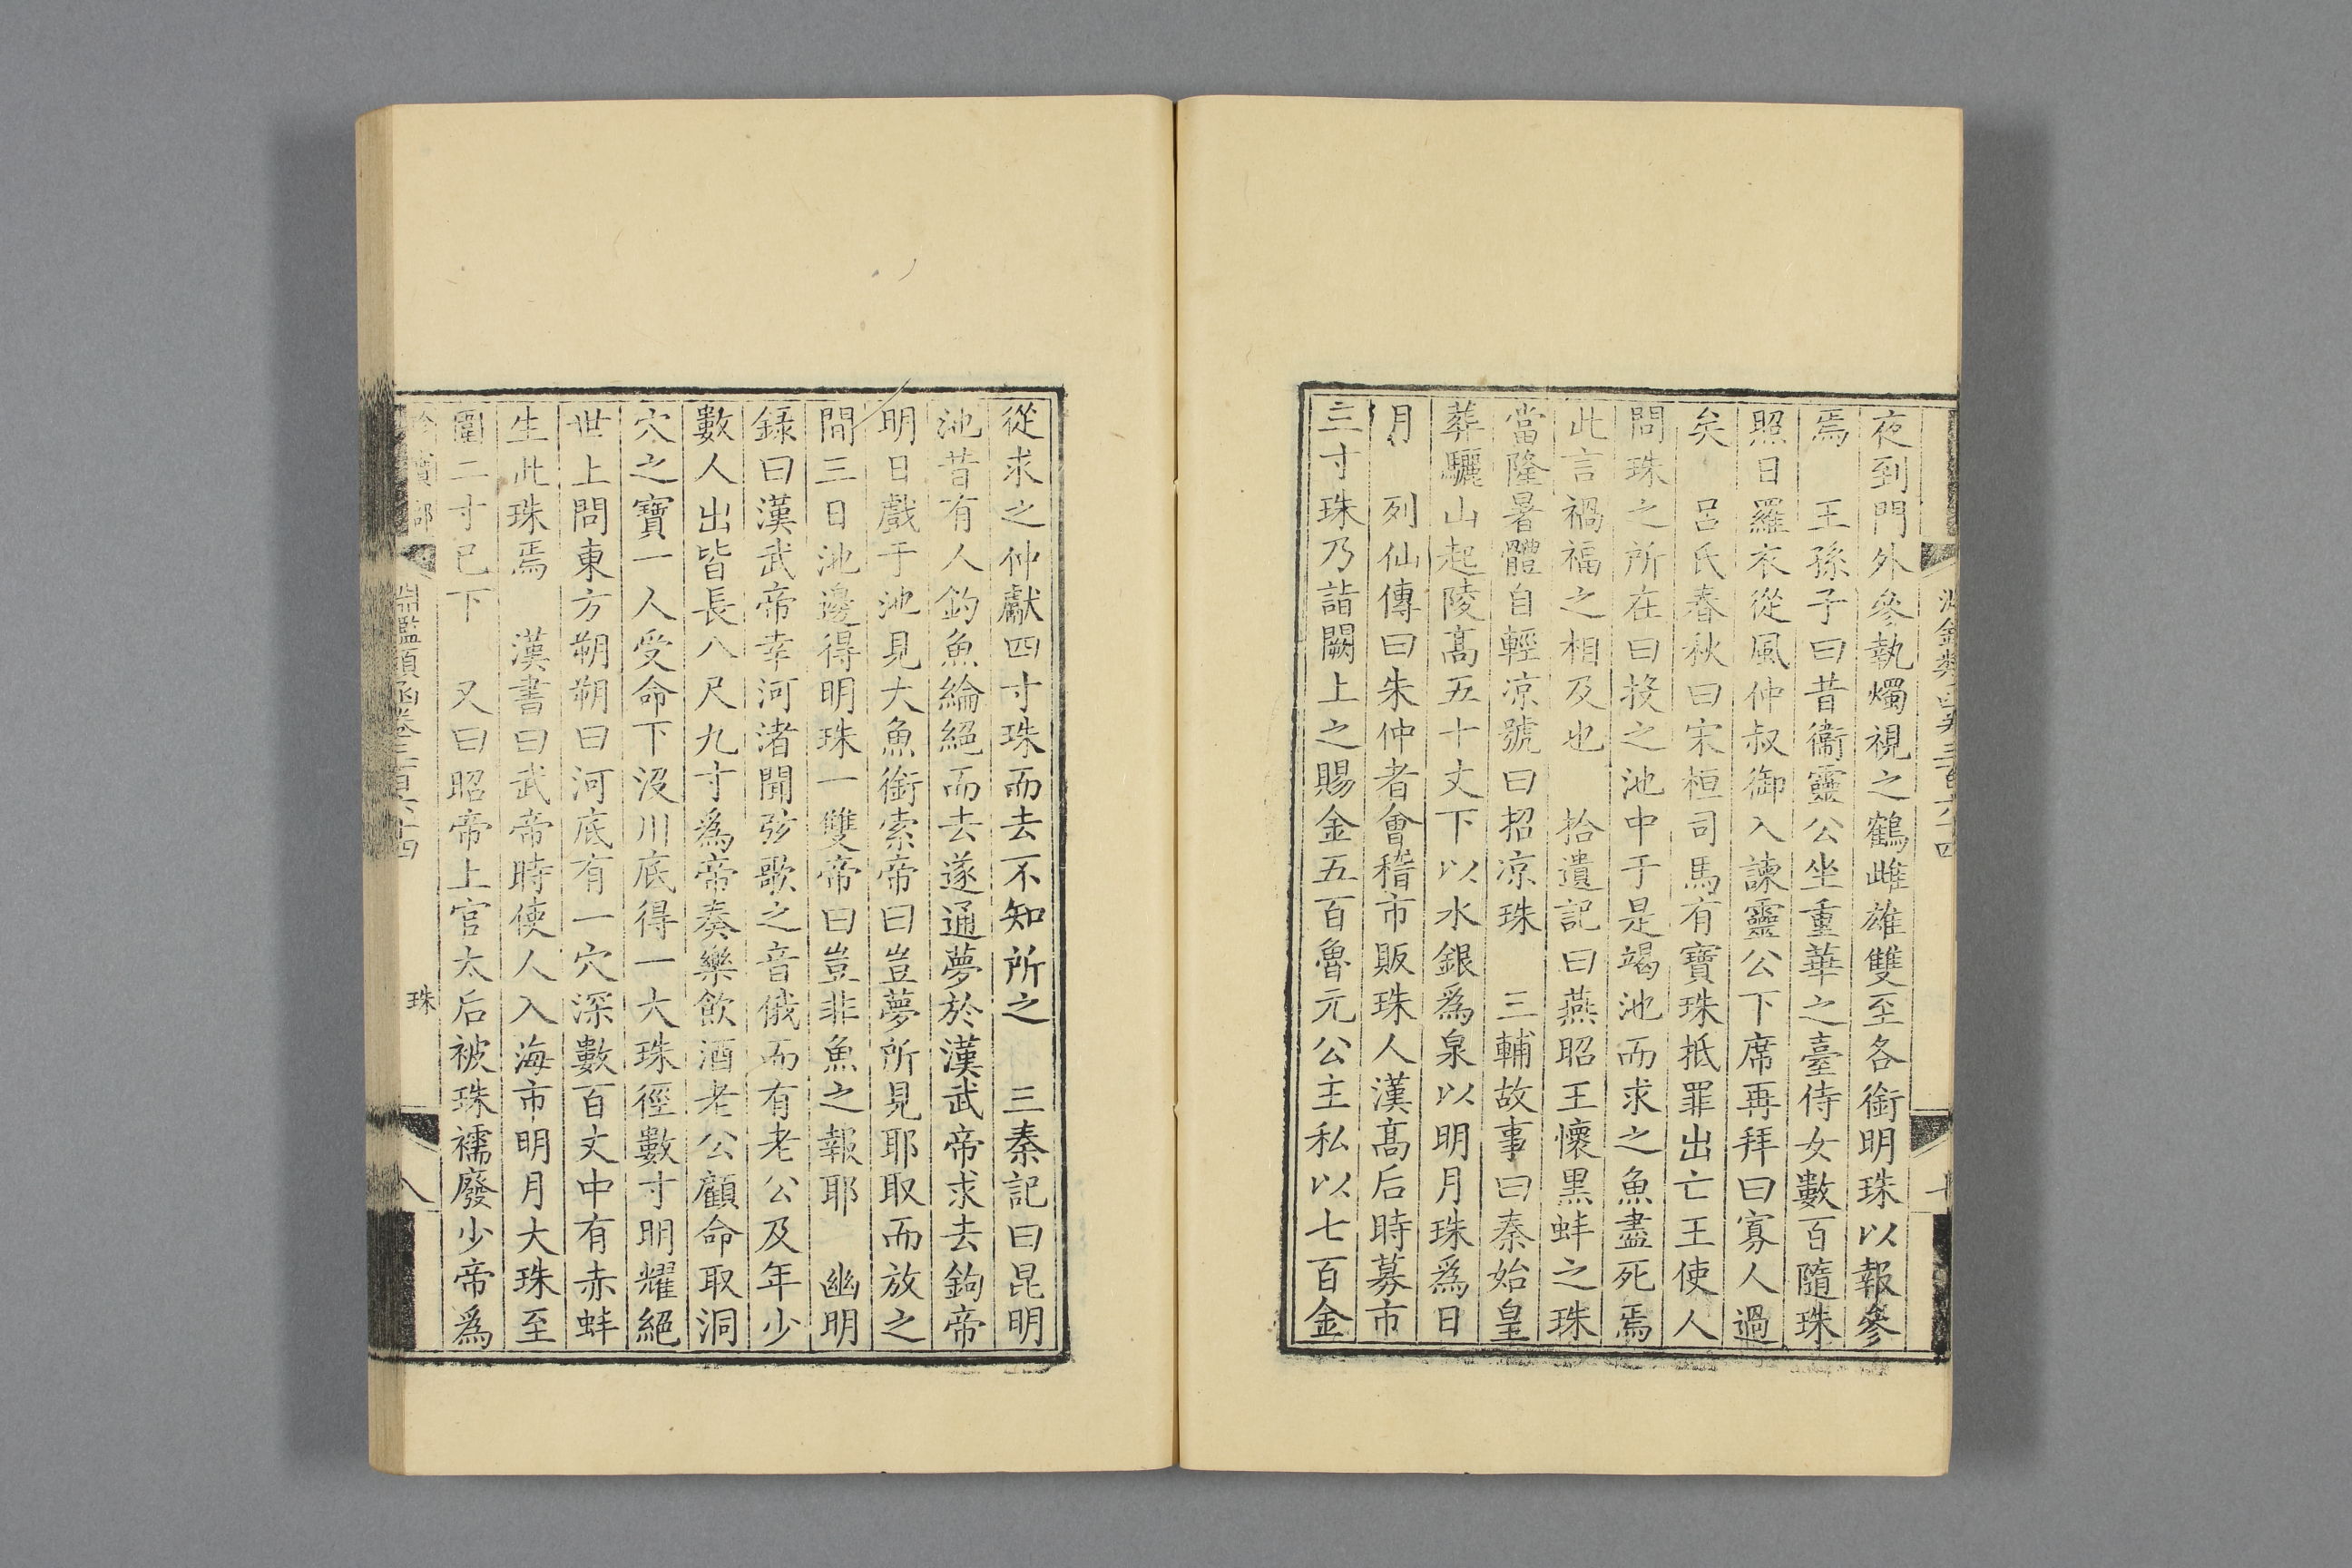 夜到門外參執燭視之鶴雌雄雙至各銜明珠以報參
焉　王孫子曰昔衞靈公坐重華之臺侍女數百隨珠
照日羅衣從風仲叔御入諫靈公下席再拜曰寡人過
矣　呂氏春秋曰宋桓司馬有寶珠抵罪出亡王使人
問珠之所在曰投之池中于是竭池而求之魚盡死焉
此言禍福之相及也　拾遺記曰燕昭王懷黑蚌之珠
當隆暑體自輕凉號曰招凉珠　三輔故事曰秦始皇
葬驪山起陵髙五十丈下以水銀爲泉以明月珠爲日
月　列仙傳曰朱仲者會稽市販珠人漢髙后時募市
三寸珠乃詣闕上之賜金五百魯元公主私以七百金
從求之仲獻四寸珠而去不知所之　三秦記曰昆明
池昔有人釣魚綸絕而去遂通夢於漢武帝求去鉤帝
明日戲于池見大魚銜索帝曰豈夢所見耶取而放之
間三日池邊得明珠一雙帝曰豈非魚之報耶　幽明
録曰漢武帝幸河渚聞弦歌之音俄而有老公及年少
數人出皆長八尺九寸爲帝奏樂飲酒老公顧命取洞
穴之寶一人受命下沒川底得一大珠徑數寸明耀絕
世上問東方朔朔曰河底有一穴深數百丈中有赤蚌
生此珠焉　漢書曰武帝時使人入海市明月大珠至
圍二寸已下　又曰昭帝上官太后被珠襦廢少帝爲
淵鑑類函卷三百六十四
珠
八